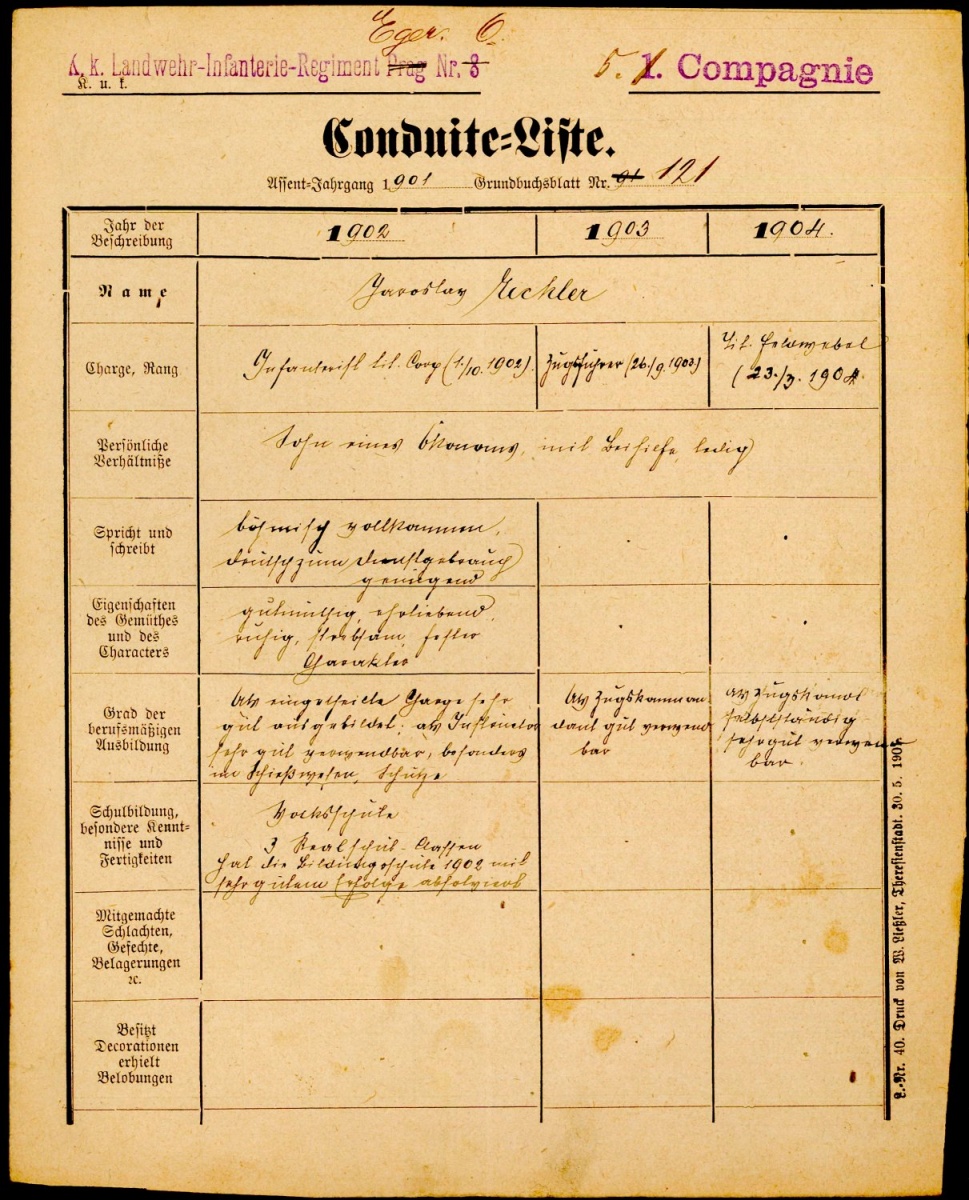 Eger. 6.
K. k. Landwehr-Infanterie-Regiment Prag Nr. 8
K. u. k.
5. 1. Compagnie
Conduite-Liste.
Assent-Jahrgang 1901 Grundbuchsblatt Nr. 91 121
Jahr der
Beschreibung
1902
1903
1904.
Name
Jaroslav
Charge, Rang
Infanterist tit. Corp (1./10. 1902).
Zugsführer (26./9. 1903)
Tit. Feldwebel
(23./3. 1904.
Persönliche
Verhältniße
Sohn eines Ökonoms, mit Beihilfe, ledig
Spricht und
schreibt
böhmisch vollkommen,
deutsch zum Dienstgebrauch
genügend
Eigenschaften
des Gemüthes
und des
Characters
gutmüthig, ehrliebend,
ruhig, strebsam, fester
Charakter
Grad der
berufsmäßigen
Ausbildung
Als eingetheilte Charge sehr
gut ausgebildet: als Instruktor
sehr gut verwendbar, besonders
im Schießwesen, Schütze
Als Zugskomman
dant gut verwend
bar
als Zugskomdt
selbstständig
sehr gut verwend
bar.
Schulbildung,
besondere Kennt-
nisse und
Fertigkeiten
Volksschule
3 Realschul-Classen
hat die Bildungsschule 1902 mit
sehr gutem Erfolge absolviert
Mitgemachte
Schlachten,
Gefechte,
Belagerungen
ꝛc.
Besitzt
Decorationen
erhielt
Belobungen
L.-Nr. 40. Druck von W. Ließler, Theresienstadt. 30. 5. 1901.